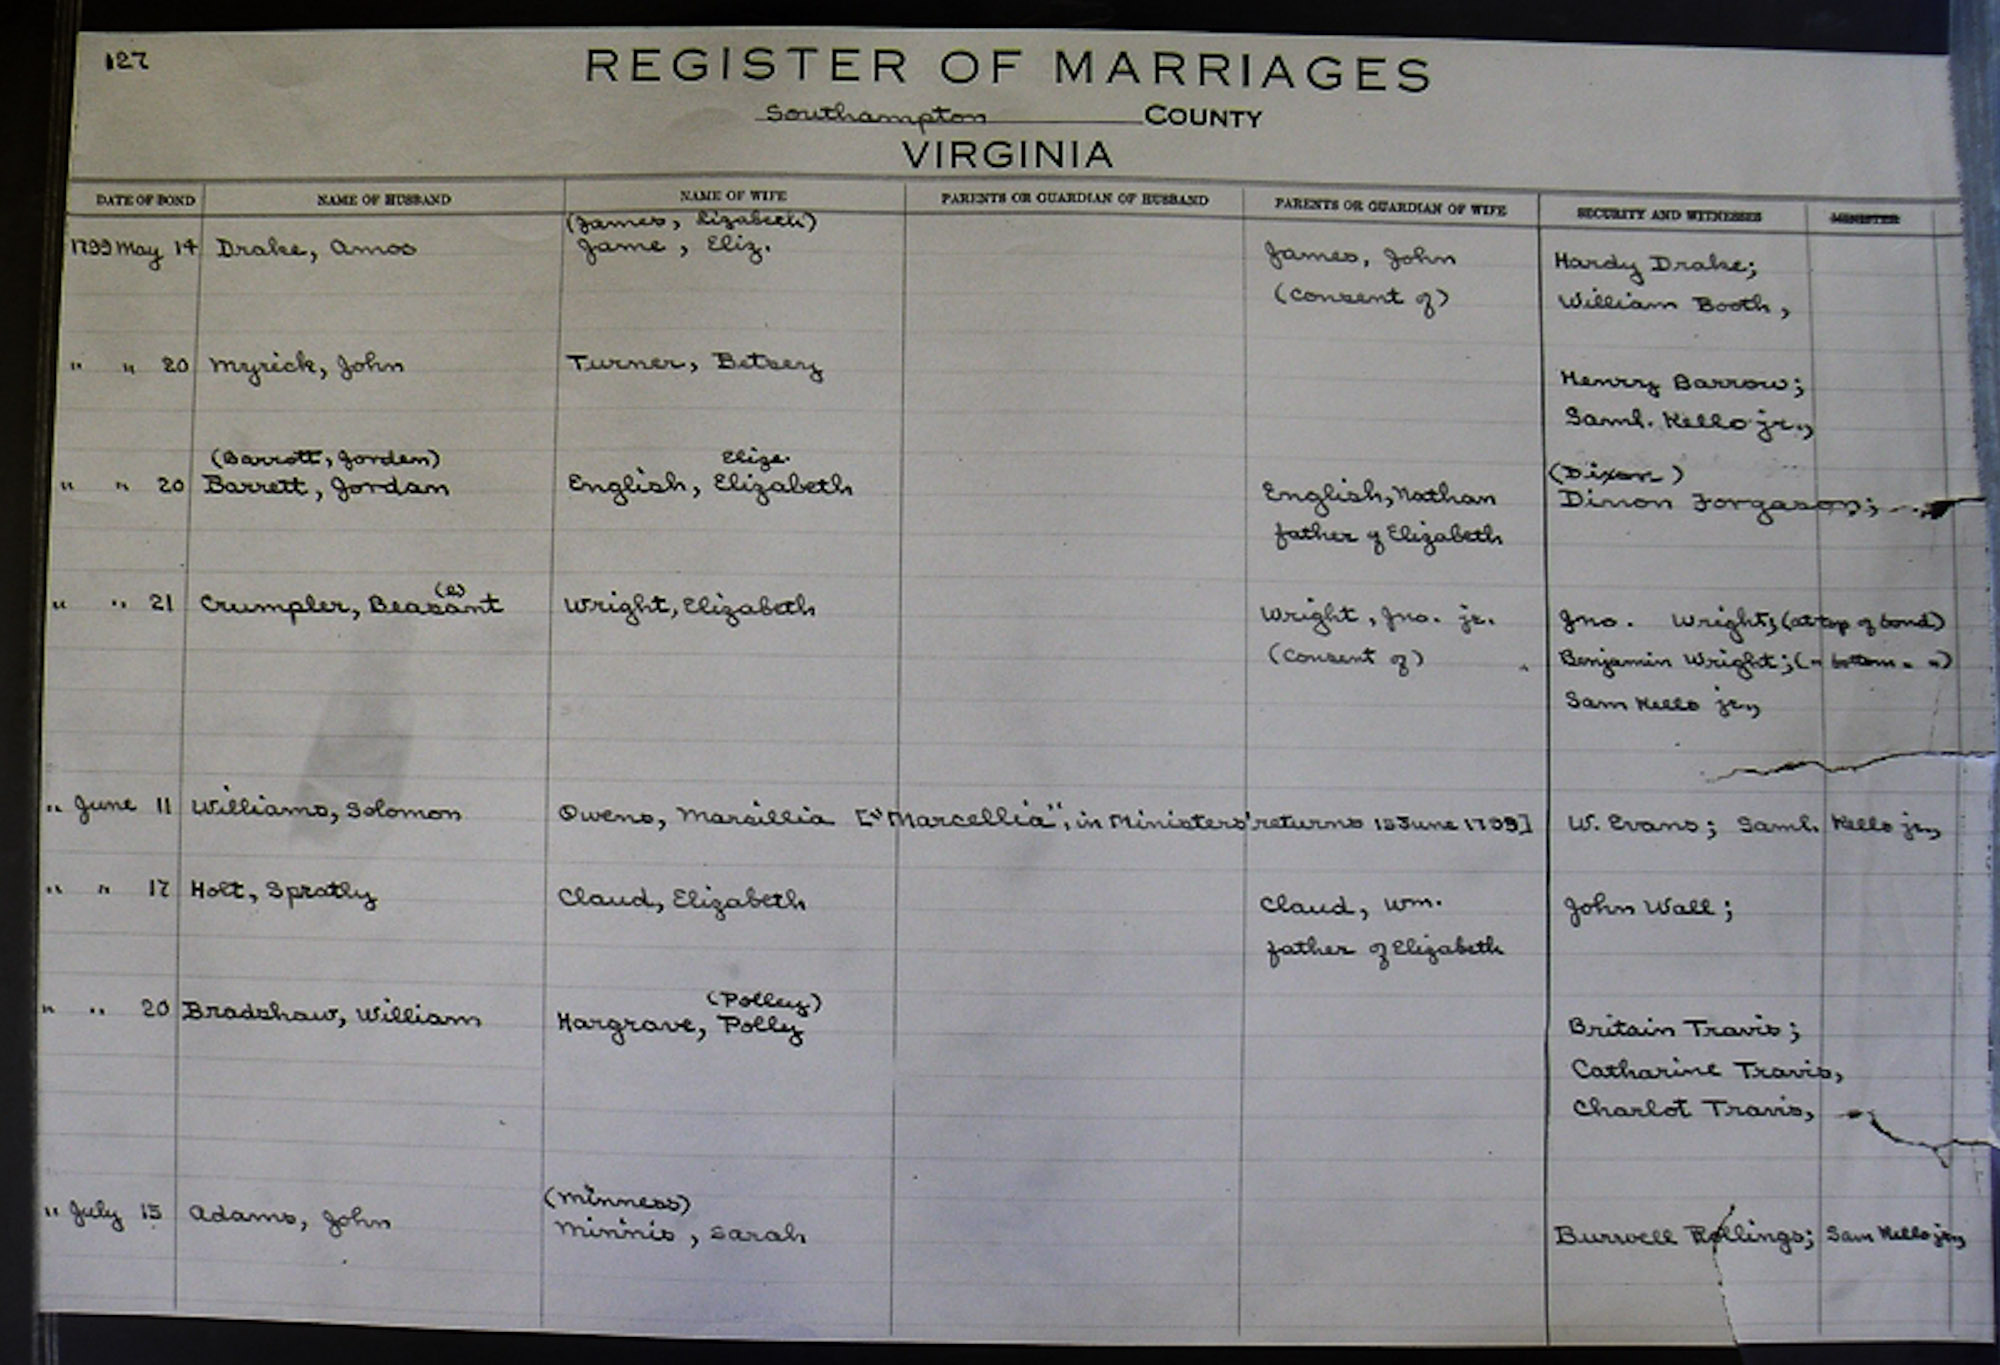 127
REGISTER OF MARRIAGES
Southampton COUNTY
VIRGINIA
DATE OF BOND NAME OF HUSBAND NAME OF WIFE PARENTS OR GUARDIAN OF HUSBAND PARENTS OR GUARDIAN OF WIFE SECURITY AND WITNESSES MINISTER
(James, Elizabeth)
1799 May 14 Drake, Amos Jame, Eliz. James, John Hardy Drake;
(consent of) William Booth,
" " 20 Myrick, John Turner, Betsey
Henrry Barrow;
Saml. Kello jr.,
(Barrott, Jorden) Eliza. (Dixon)
" " 20 Barrett, Jordan English, Elizabeth English, Nathan Dinon Forgason;
father of Elizabeth
(e)
" " 21 Crumpler, Beasant Wright, Elizabeth Wright, Jno. jr. Jno. Wright; (at top of bond)
(consent of) Benjamin Wright; (" bottom " ")
Sam Kello jr.,
" June 11 Williams, Solomon Owens, Marsillia ["Marcellia", in Ministers' returns 15 June 1799] W. Evans; Saml. Kello jr.,
" " 17 Holt, Spratly Claud, Elizabeth Claud, Wm. John Wall;
father of Elizabeth
(Polley)
" " 20 Bradshaw, William Hargrave, Polly Britain Travis;
Catharine Travis,
Charlot Travis,
(Minness)
" July 15 Adams, John Minnis, Sarah Burwell Rollings; Sam Kello jr.,